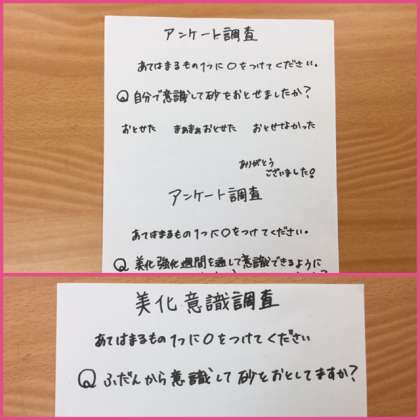 アンケート調査
あてはまるもの1つに○をつけてください。
Q 自分で意識して砂をおとせましたか？
おとせた　まぁまぁおとせた　おとせなかった
ありがとう
ございました!
アンケート調査
あてはまるもの1つに○をつけてください。
Q 美化強化週間を通して意識できるように
美化意識調査
あてはまるもの1つに○をつけてください
Q ふだんから意識して砂をおとしてますか？